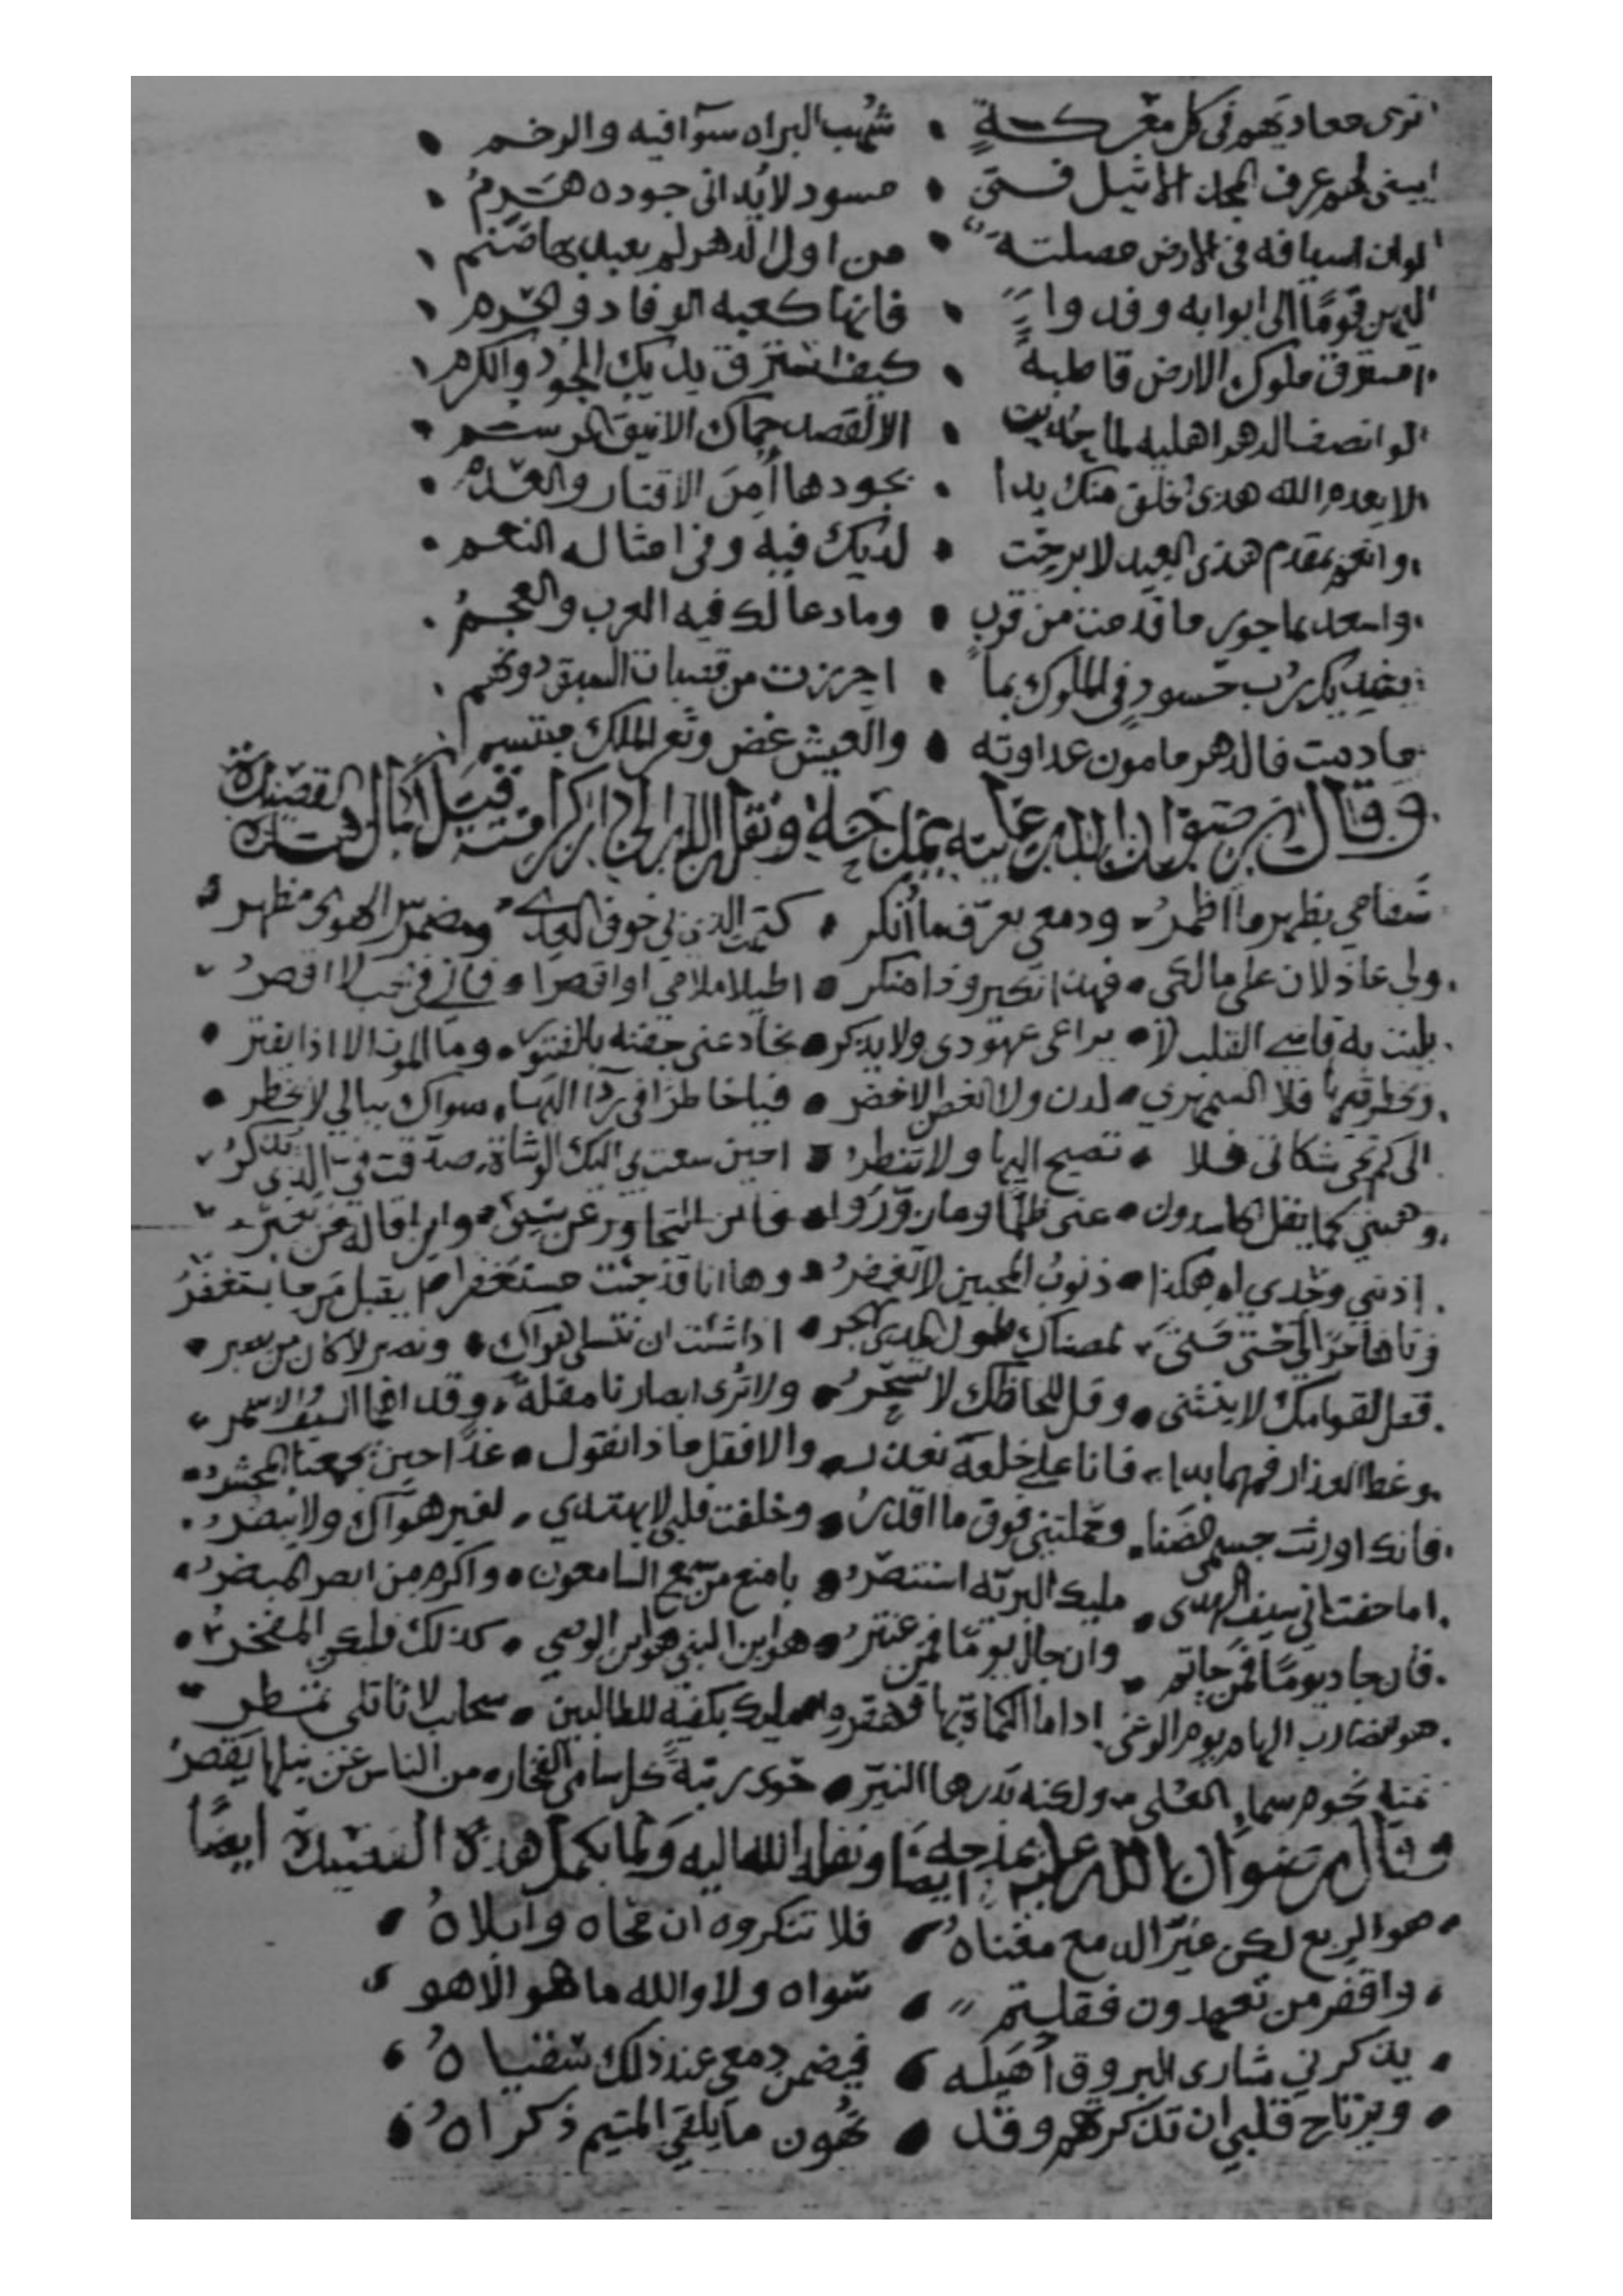 ترى معاديهم فى كل معركة • شهب البزاه سوآفيه والرخم
يبنى لهم غرف المجد الاثيل فتى • مسود لايُدانى جوده هَرِمُ
لو ان اسيافه فى الارض مصلتة • من اول الدهر لم يعبد بها صَنَم
قومًا الى ابوابه وفدوا • فانها كعبه الوفاد والحرم
ملوك الارض قاطبة • كيف استرق يديك الجود والكرم
لو انصف الدهر اهليه لما • الا لقصد حماك الانيق
لا يعدم الله هذى الخلق منك يدا • بجودها أمن الاقتار والعدم
وانعم بمقدم هذى العيد لابرحت • لديك فيه وفى امثاله النعم
واسعد بما حوى ما قدمت من قرب • وما دعا لك فيه العرب والعجمُ
يفديك رب حسود فى الملوك بما • احرزت من قصبات السبق دونهم
مادمت فالدهر مامون عداوته • والعيش غض وثغر الملك مبتسم
وقال رضوان الله عليه يمدحه ونقل الله الى دار كرامته قبل اكمال القصيدة
سقامي يظهر ما اظمرُ • ودمعى يعرّف ما أُنكر • كتمت الذى بي خوف العدى • ومضمر سر الهوى مظهر
ولى عاذلان على مالكى • فهذا نكير وذا منكر • اطيلا ملامي او اقصرا • فاني فى حب لا اقصرُ
بليت به قاسى القلب لا • يراعى عهودى ولا يذكر • يخادعنى جفنه بالفتور • وما الموت الا اذا يفتر
وخطرته فلا السمهري • لدن ولا الغصن الاخضر • فيا خاطرًا فى ردا البها • سواك ببالي لا يخطر
الى كم شكاتى فلا • تصيح اليها ولا تنظرُ • احين سعت بي اليك الوشاة • صدقت فى الذى تذكرُ
وهبني كما يفل الحاسدون • عنى ظلما وما زوّرُوا • فاين التجاوز عن سيئ • واين اقالة من يعثر
اذنبي وحدي ام هكذا • ذنوبُ المحبين لا تغفرُ • وها انا قد جئت مستغفرا • يقبل من ما يستغفرُ
اذا شئت ان نتسلى هواك • ونصبر لا كان من يصبر
فقل لقوامك لا ينثنى • وقل للحاظك لا تسحرُ • ولا ترى ابصارنا مقلة • وقد السيف الاسمر
وغطا العذار فمهما بدا • فانا على خلعه نعذر • والا فقل ماذا نقول • غدًا حين يجمعنا المحشرُ
فانك اورثت جسمى الضنا • وحملتنى فوق ما اقدرُ • وخلفت قلبي لا يهتدي • لغير هوآك ولا يبصرُ
اما خفت انى بسيف الهدى • مليك البريّه استنصرُ • بامنع من سمع السامعون • واكرم من ابصر المبصرُ
فان جاد يومًا فمن حاتم • وان جال يومًا فمن عنترُ • هو ابن النبي هو ابن الوصي • كذلك فليكن المفخرُ
هو الضارب الهام يوم الوغى • اذا ما الكماة بها تقهقر • مليك بكفيه للطالبين • سحاب لا ثاتلى تمطر
نجوم سماء العلى • ولكنه بدرها النيّر • حوى رتبة كل سامى الفخار • من الناس عن نيلها يقصرُ
وقال رضوان الله عليه يمدحه ايضًا ونقله الله اليه ولما يكمل هذه القصيدة ايضًا
هو الربع لكن غيّر الدمع مغناهُ • فلا تنكروه ان محاه وابلاهُ
واقفر من تعهدون فقلتم • سَواه ولا والله ما هو الا هو
يذكرني سارى البروق أُهَيله • فيضمن دمعى عند ذلك سُقياهُ
ويرتاح قلبي ان تذكرتهم وقد • يُهون ما يلقى المتيم ذكراهُ